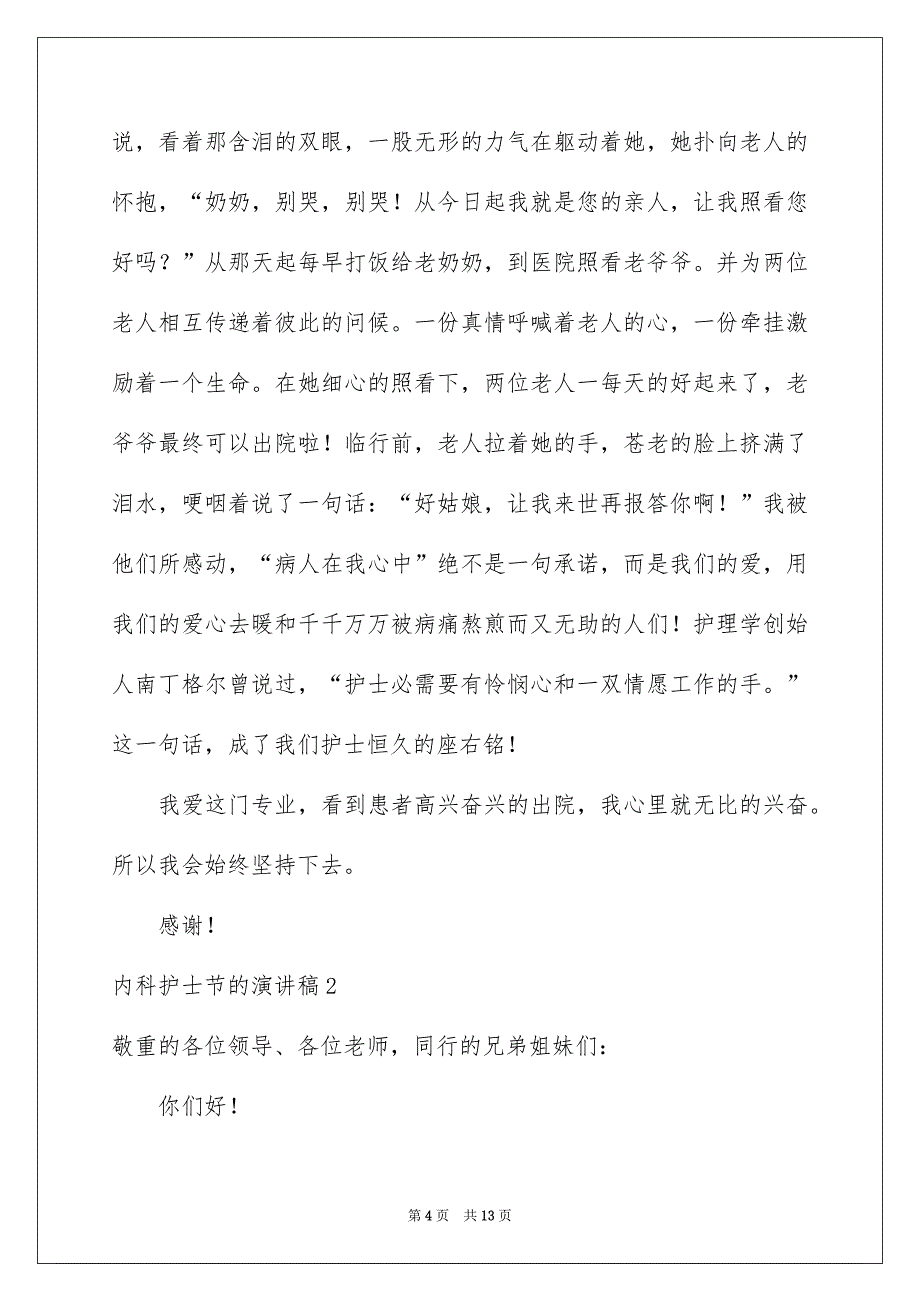 说，看着那含泪的双眼，一股无形的力气在躯动着她，她扑向老人的
怀抱，“奶奶，别哭，别哭！从今日起我就是您的亲人，让我照看您
好吗？”从那天起每早打饭给老奶奶，到医院照看老爷爷。并为两位
老人相互传递着彼此的问候。一份真情呼喊着老人的心，一份牵挂激
励着一个生命。在她细心的照看下，两位老人一每天的好起来了，老
爷爷最终可以出院啦！临行前，老人拉着她的手，苍老的脸上挤满了
泪水，哽咽着说了一句话：“好姑娘，让我来世再报答你啊！”我被
他们所感动，“病人在我心中”绝不是一句承诺，而是我们的爱，用
我们的爱心去暖和千千万万被病痛熬煎而又无助的人们！护理学创始
人南丁格尔曾说过，“护士必需要有怜悯心和一双情愿工作的手。”
这一句话，成了我们护士恒久的座右铭！
我爱这门专业，看到患者高兴奋兴的出院，我心里就无比的兴奋。
所以我会始终坚持下去。
感谢！
内科护士节的演讲稿2
敬重的各位领导、各位老师，同行的兄弟姐妹们：
你们好！
第 4 页 共 13 页